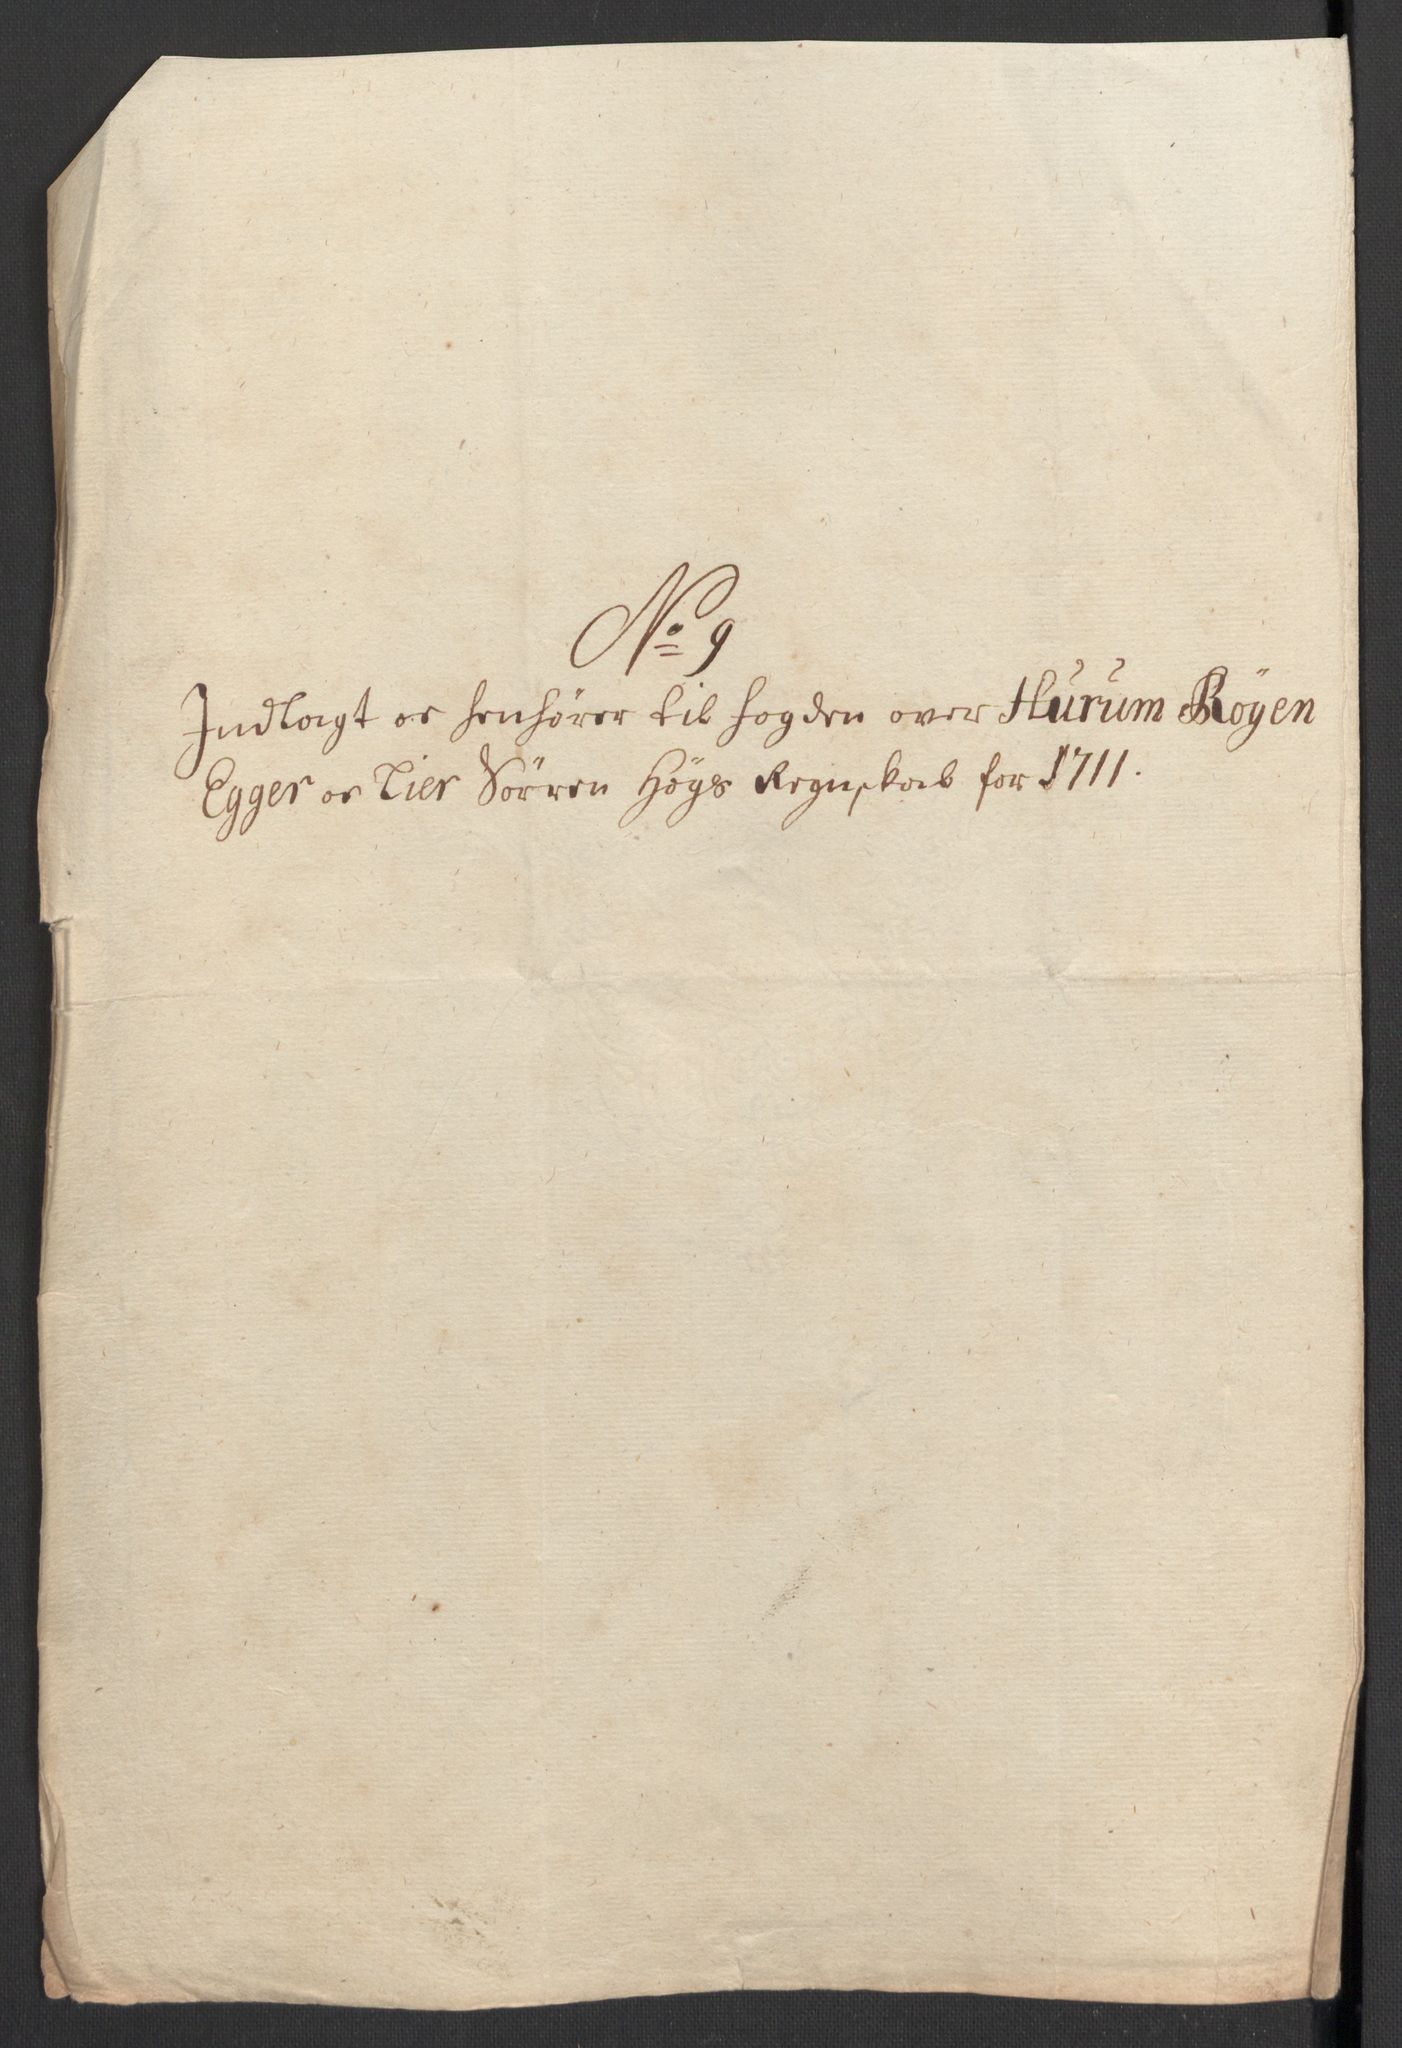 No 9
Indlagt oc henhörer til fogden over Hurum Röyen
Egger oc Lier Sörren Höys Regnskab for 1711.